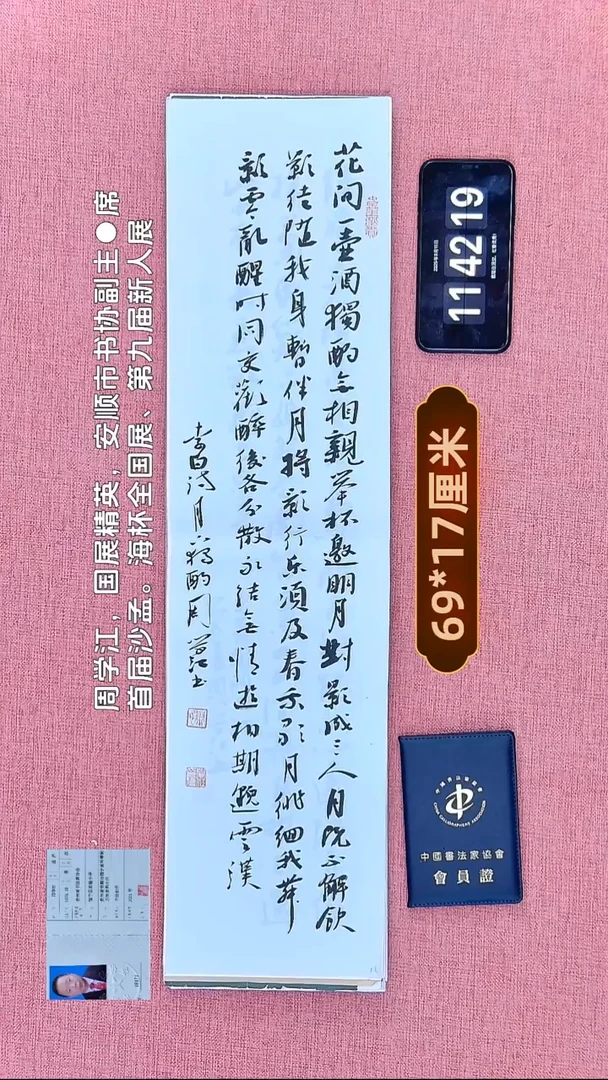 周学江，国展精英，安顺市书协副主●席
首届沙孟。海杯全国展、第九届新人展
花间一壺酒獨酌無相親举杯邀明月對影成三人月既不解飲
影徒随我身暫伴月将影行乐须及春我歌月徘徊我舞
影零亂醒时同交歡醉後各分散永结無情遊相期邈雲漢
李白诗月下獨酌周学江书
11 42 19
69*17厘米
中國書法家協會
CHINA CALLIGRAPHERS ASSOCIATION
中國書法家協會
會員證